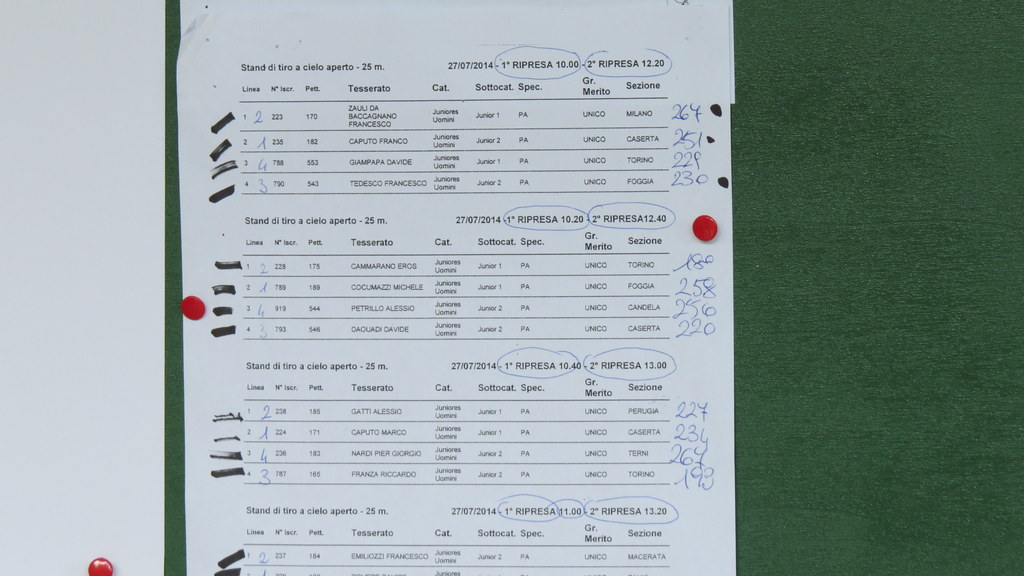 Stand di tiro a cielo aperto - 25 m. 27/07/2014 - 1° RIPRESA 10.00 - 2° RIPRESA 12.20
Linea N° Iscr. Pett. Tesserato Cat. Sottocat. Spec. Gr. Merito Sezione
1 2 223 170 ZAULI DA BACCAGNANO FRANCESCO Juniores Uomini Junior 1 PA UNICO MILANO 267
2 1 235 182 CAPUTO FRANCO Juniores Uomini Junior 2 PA UNICO CASERTA 251
3 4 788 553 GIAMPAPA DAVIDE Juniores Uomini Junior 1 PA UNICO TORINO 229
4 3 790 543 TEDESCO FRANCESCO Juniores Uomini Junior 2 PA UNICO FOGGIA 230
Stand di tiro a cielo aperto - 25 m. 27/07/2014 - 1° RIPRESA 10.20 - 2° RIPRESA12.40
Linea N° Iscr. Pett. Tesserato Cat. Sottocat. Spec. Gr. Merito Sezione
1 2 228 175 CAMMARANO EROS Juniores Uomini Junior 1 PA UNICO TORINO 180
2 1 789 189 COCUMAZZI MICHELE Juniores Uomini Junior 1 PA UNICO FOGGIA 258
3 4 919 544 PETRILLO ALESSIO Juniores Uomini Junior 2 PA UNICO CANDELA 256
4 3 793 546 DAOUADI DAVIDE Juniores Uomini Junior 2 PA UNICO CASERTA 220
Stand di tiro a cielo aperto - 25 m. 27/07/2014 - 1° RIPRESA 10.40 - 2° RIPRESA 13.00
Linea N° Iscr. Pett. Tesserato Cat. Sottocat. Spec. Gr. Merito Sezione
1 2 238 185 GATTI ALESSIO Juniores Uomini Junior 1 PA UNICO PERUGIA 227
2 1 224 171 CAPUTO MARCO Juniores Uomini Junior 1 PA UNICO CASERTA 234
3 4 236 183 NARDI PIER GIORGIO Juniores Uomini Junior 2 PA UNICO TERNI 264
4 3 787 165 FRANZA RICCARDO Juniores Uomini Junior 2 PA UNICO TORINO 193
Stand di tiro a cielo aperto - 25 m. 27/07/2014 - 1° RIPRESA 11.00 - 2° RIPRESA 13.20
Linea N° Iscr. Pett. Tesserato Cat. Sottocat. Spec. Gr. Merito Sezione
1 2 237 184 EMILIOZZI FRANCESCO Juniores Uomini Junior 2 PA UNICO MACERATA